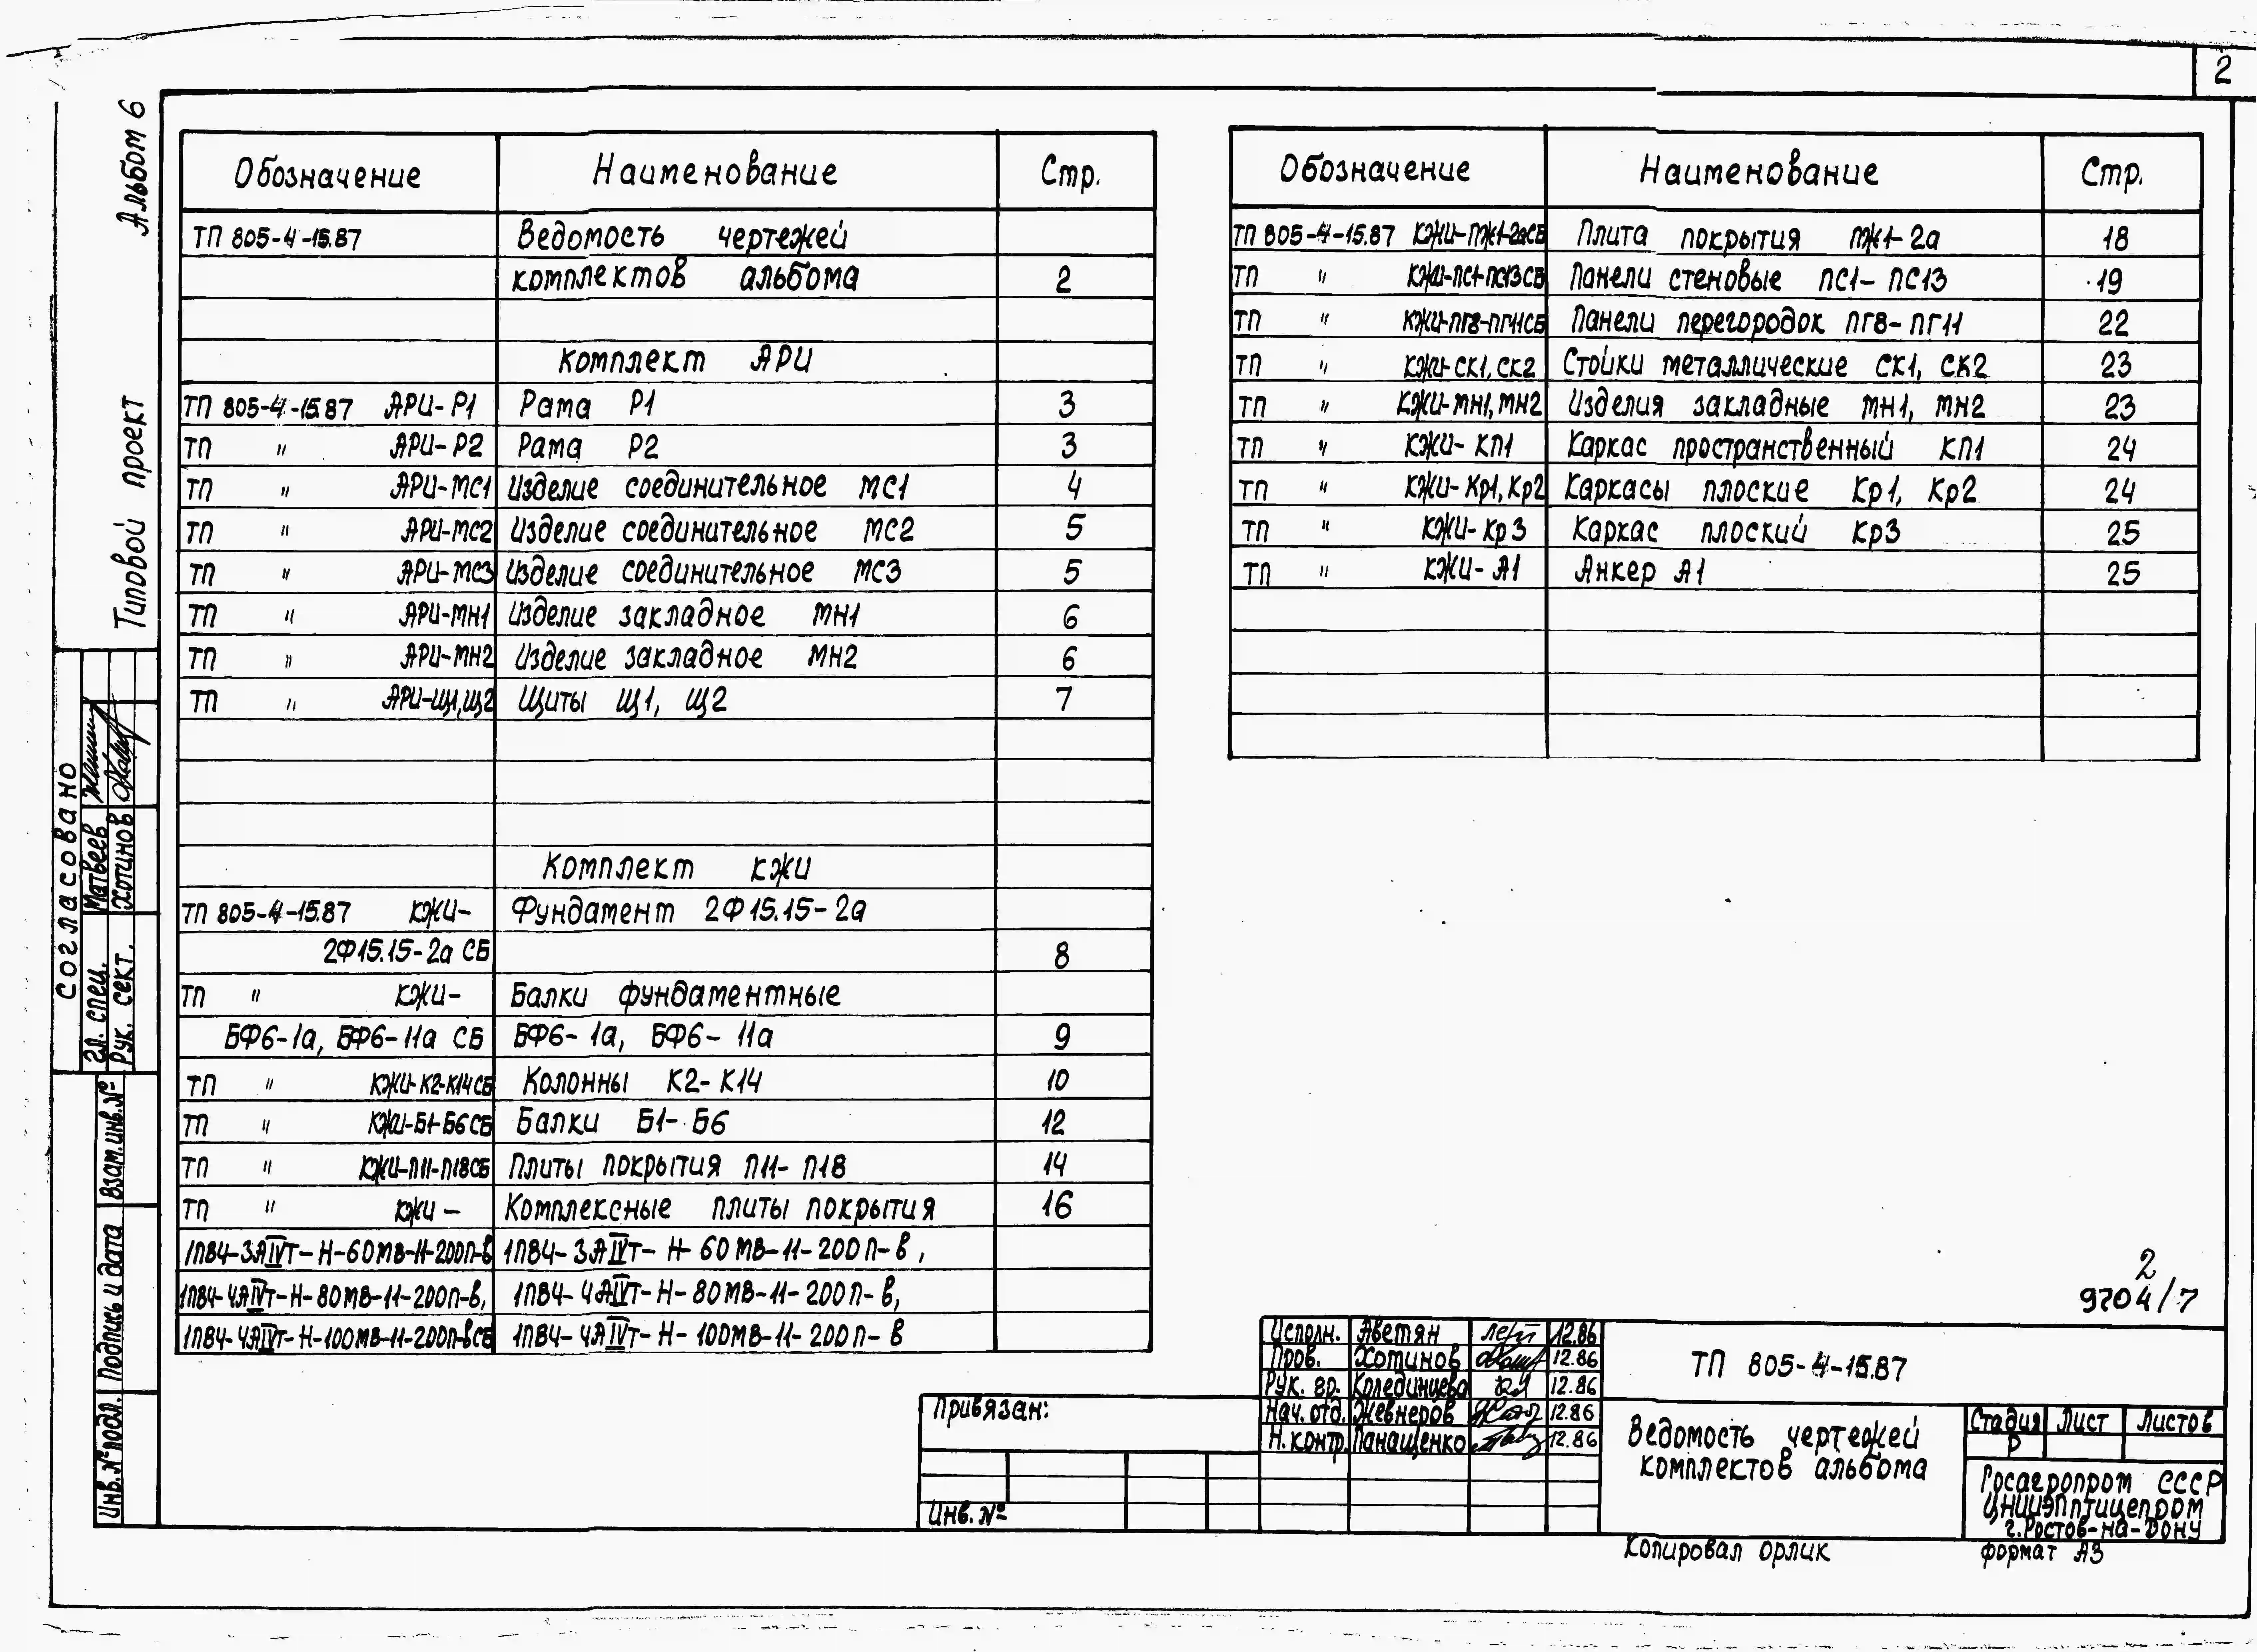 2
Альбом 6
Типовой проект
Обозначение Наименование Стр.
ТП 805-4-15.87 Ведомость чертежей
комплектов альбома 2
Комплект АРИ
ТП 805-4-15.87 АРИ-Р1 Рама Р1 3
ТП " АРИ-Р2 Рама Р2 3
ТП " АРИ-МС1 Изделие соединительное МС1 4
ТП " АРИ-МС2 Изделие соединительное МС2 5
ТП " АРИ-МС3 Изделие соединительное МС3 5
ТП " АРИ-МН1 Изделие закладное МН1 6
ТП " АРИ-МН2 Изделие закладное МН2 6
ТП " АРИ-Щ1,Щ2 Щиты Щ1, Щ2 7
Комплект КЖИ
ТП 805-4-15.87 КЖИ- Фундамент 2Ф15.15-2а
2Ф15.15-2а СБ 8
ТП " КЖИ- Балки фундаментные
БФ6-1а, БФ6-11а СБ БФ6-1а, БФ6-11а 9
ТП " КЖИ-К2-К14СБ Колонны К2-К14 10
ТП " КЖИ-Б1-Б6СБ Балки Б1-Б6 12
ТП " КЖИ-П11-П18СБ Плиты покрытия П11-П18 14
ТП " КЖИ- Комплексные плиты покрытия 16
1ПВ4-3АIVТ-Н-60МВ-11-200П-В 1ПВ4-3АIVТ-Н-60МВ-11-200П-В,
1ПВ4-4АIVТ-Н-80МВ-11-200П-В, 1ПВ4-4АIVТ-Н-80МВ-11-200П-В,
1ПВ4-4АIVТ-Н-100МВ-11-200П-ВСБ 1ПВ4-4АIVТ-Н-100МВ-11-200П-В
Обозначение Наименование Стр.
ТП 805-4-15.87 КЖИ-ПЖ1-2аСБ Плита покрытия ПЖ1-2а 18
ТП " КЖИ-ПС1-ПС13СБ Панели стеновые ПС1-ПС13 19
ТП " КЖИ-ПГ8-ПГ11СБ Панели перегородок ПГ8-ПГ11 22
ТП " КЖИ-СК1, СК2 Стойки металлические СК1, СК2 23
ТП " КЖИ-МН1, МН2 Изделия закладные МН1, МН2 23
ТП " КЖИ-КП1 Каркас пространственный КП1 24
ТП " КЖИ-Кр1, Кр2 Каркасы плоские Кр1, Кр2 24
ТП " КЖИ-Кр3 Каркас плоский Кр3 25
ТП " КЖИ-А1 Анкер А1 25
Согласовано
Гл. спец. Матвеев
Рук. сект. Хотинов
Взам.инв.№
Подпись и дата
Инв.№подл.
2
9704/7
Привязан:
Инв. №
Исполн. Аветян 12.86
Пров. Хотинов 12.86
Рук. гр. Колединцева 12.86
Нач. отд. Жевнеров 12.86
Н. контр. Панащенко 12.86
ТП 805-4-15.87
Ведомость чертежей
комплектов альбома
Стадия Лист Листов
Р
Госагропром СССР
ЦНИИЭПптицепром
г.Ростов-на-Дону
Копировал Орлик формат А3